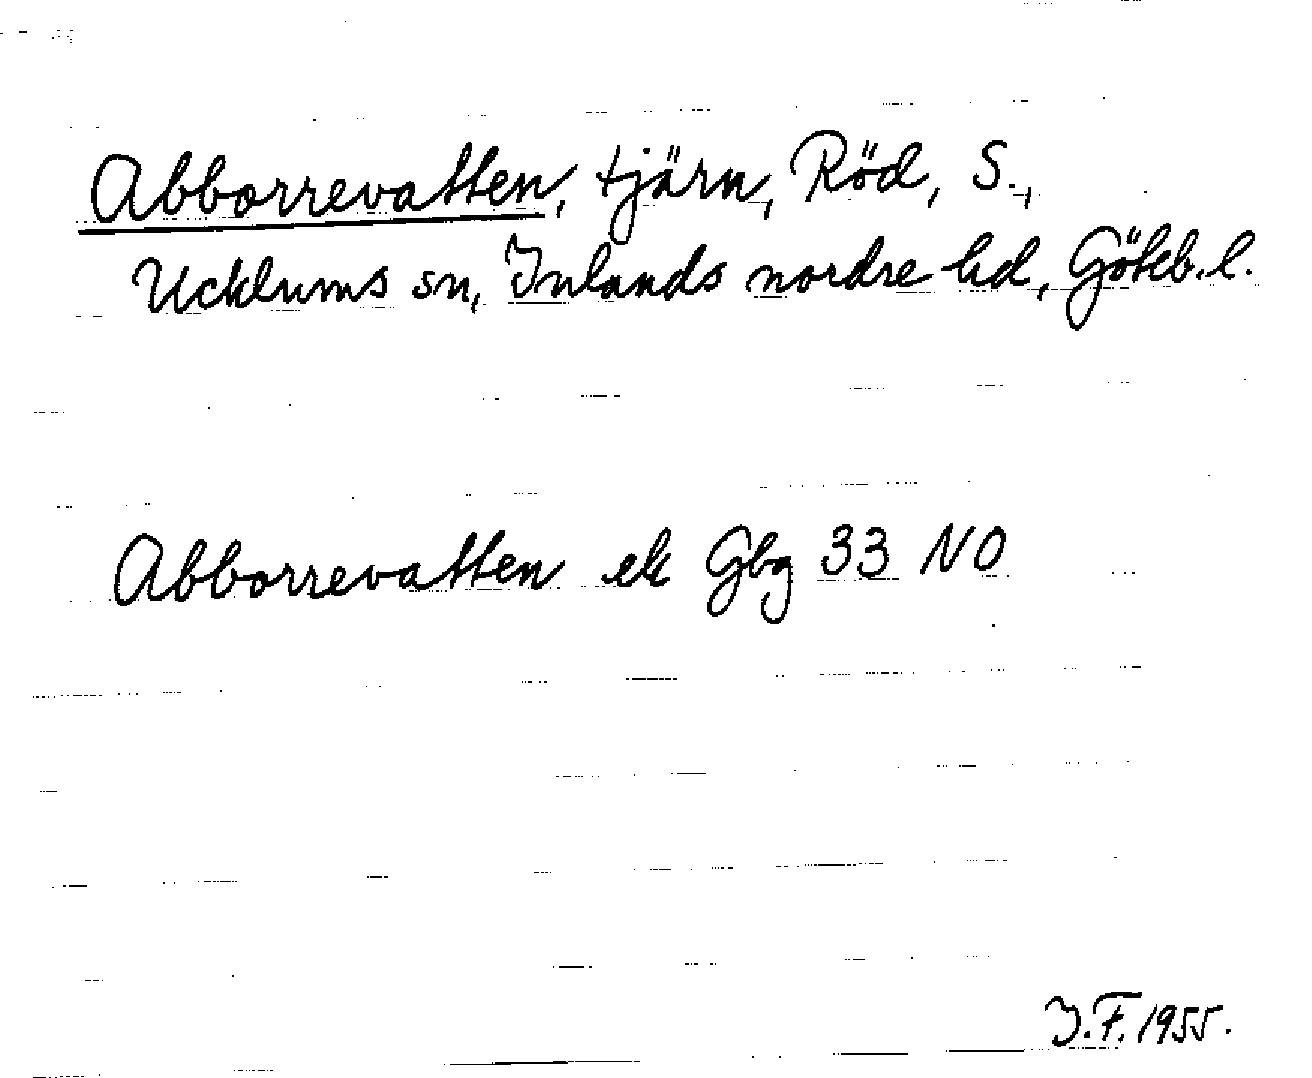 Abborrevatten, tjärn, Röd, S.,
Ucklums sn, Inlands nordre hd, Göteb. l.
Abborrevatten ek Gbg 33 NO
J.F. 1955.